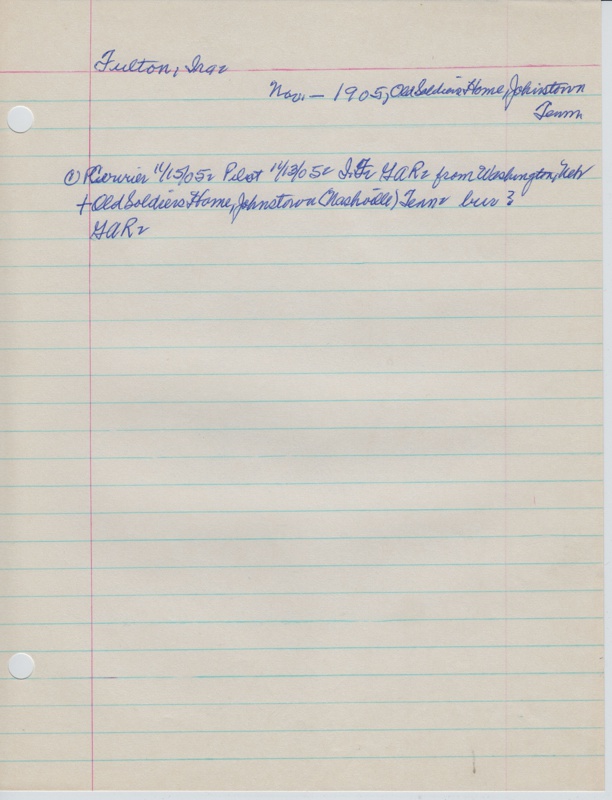 Fulton, Ira
Nov. – 1905, Old Soldiers Home, Johnstown
Tenn.
① Courier 11/15/05 Pilot 11/13/05 I.F. GAR from Washington, Neb
+ Old Soldiers Home, Johnstown (Nashville) Tenn bur ?
GAR